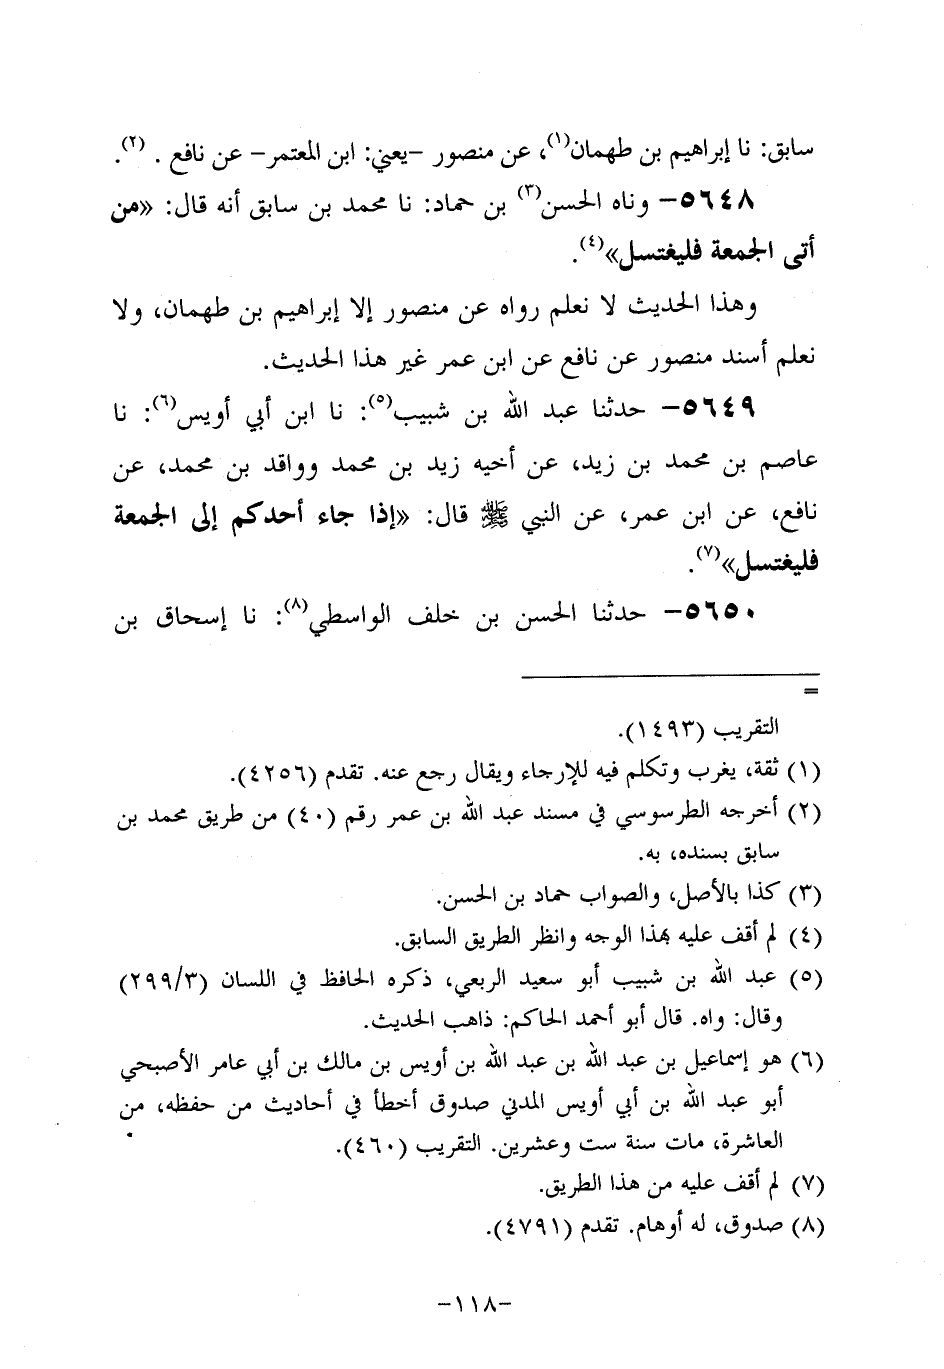 سابق: نا إبراهيم بن طهمان(١)، عن منصور -يعني: ابن المعتمر- عن نافع . (٢).
٥٦٤٨- وناه الحسن(٣) بن حماد: نا محمد بن سابق أنه قال: «من
أتى الجمعة فليغتسل»(٤).
وهذا الحديث لا نعلم رواه عن منصور إلا إبراهيم بن طهمان، ولا
نعلم أسند منصور عن نافع عن ابن عمر غير هذا الحديث.
٥٦٤٩- حدثنا عبد الله بن شبيب(٥): نا ابن أبي أويس(٦): نا
عاصم بن محمد بن زيد، عن أخيه زيد بن محمد وواقد بن محمد، عن
نافع، عن ابن عمر، عن النبي ﷺ قال: «إذا جاء أحدكم إلى الجمعة
فليغتسل»(٧).
٥٦٥٠- حدثنا الحسن بن خلف الواسطي(٨): نا إسحاق بن
=
التقريب (١٤٩٣).
(١) ثقة، يغرب وتكلم فيه للإرجاء ويقال رجع عنه. تقدم (٤٢٥٦).
(٢) أخرجه الطرسوسي في مسند عبد الله بن عمر رقم (٤٠) من طريق محمد بن
سابق بسنده، به.
(٣) كذا بالأصل، والصواب حماد بن الحسن.
(٤) لم أقف عليه بهذا الوجه وانظر الطريق السابق.
(٥) عبد الله بن شبيب أبو سعيد الربعي، ذكره الحافظ في اللسان (٢٩٩/٣)
وقال: واه. قال أبو أحمد الحاكم: ذاهب الحديث.
(٦) هو إسماعيل بن عبد الله بن عبد الله بن أويس بن مالك بن أبي عامر الأصبحي
أبو عبد الله بن أبي أويس المدني صدوق أخطأ في أحاديث من حفظه، من
العاشرة، مات سنة ست وعشرين. التقريب (٤٦٠).
(٧) لم أقف عليه من هذا الطريق.
(٨) صدوق، له أوهام. تقدم (٤٧٩١).
-١١٨-